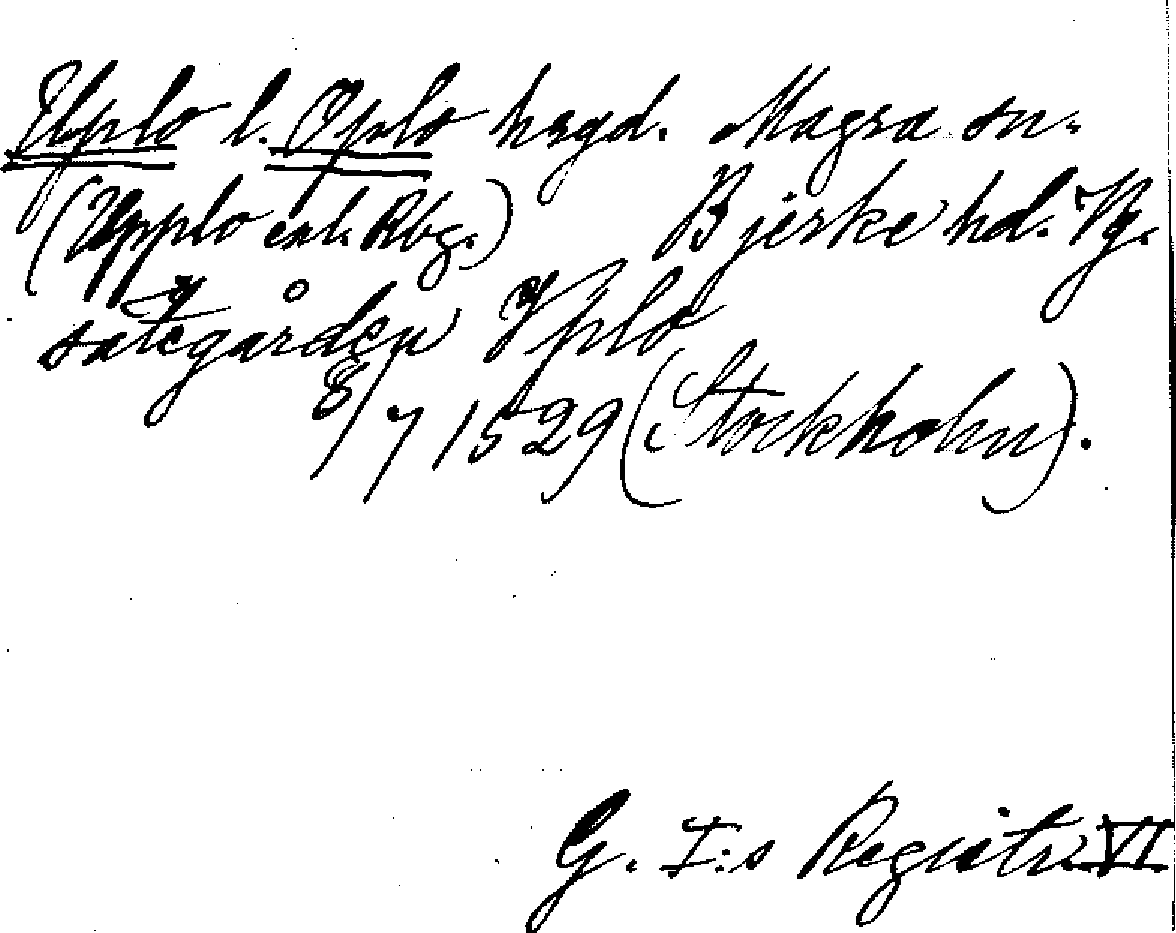 Upplo l. Oplo hrgd. Magra sn.
(Upplo enl. Rbg.) Bjerke hd. Vg.
sätegården Yplo
8/7 1529 (Stockholm).
G. I:s Registr. VI